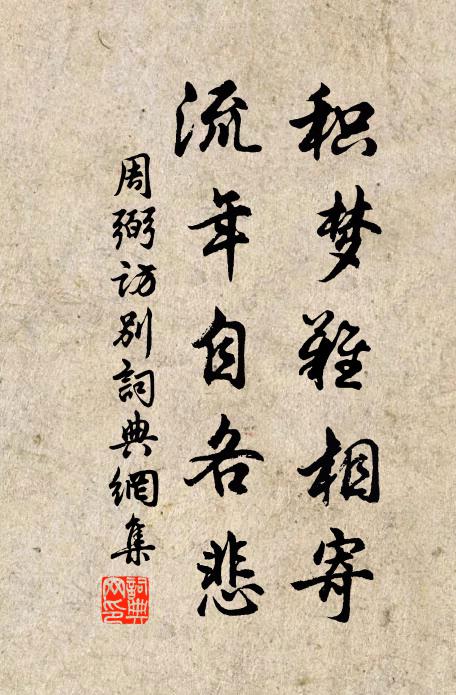 积梦难相寄
流年自各悲
周弼访别詞典網集
詞典网印